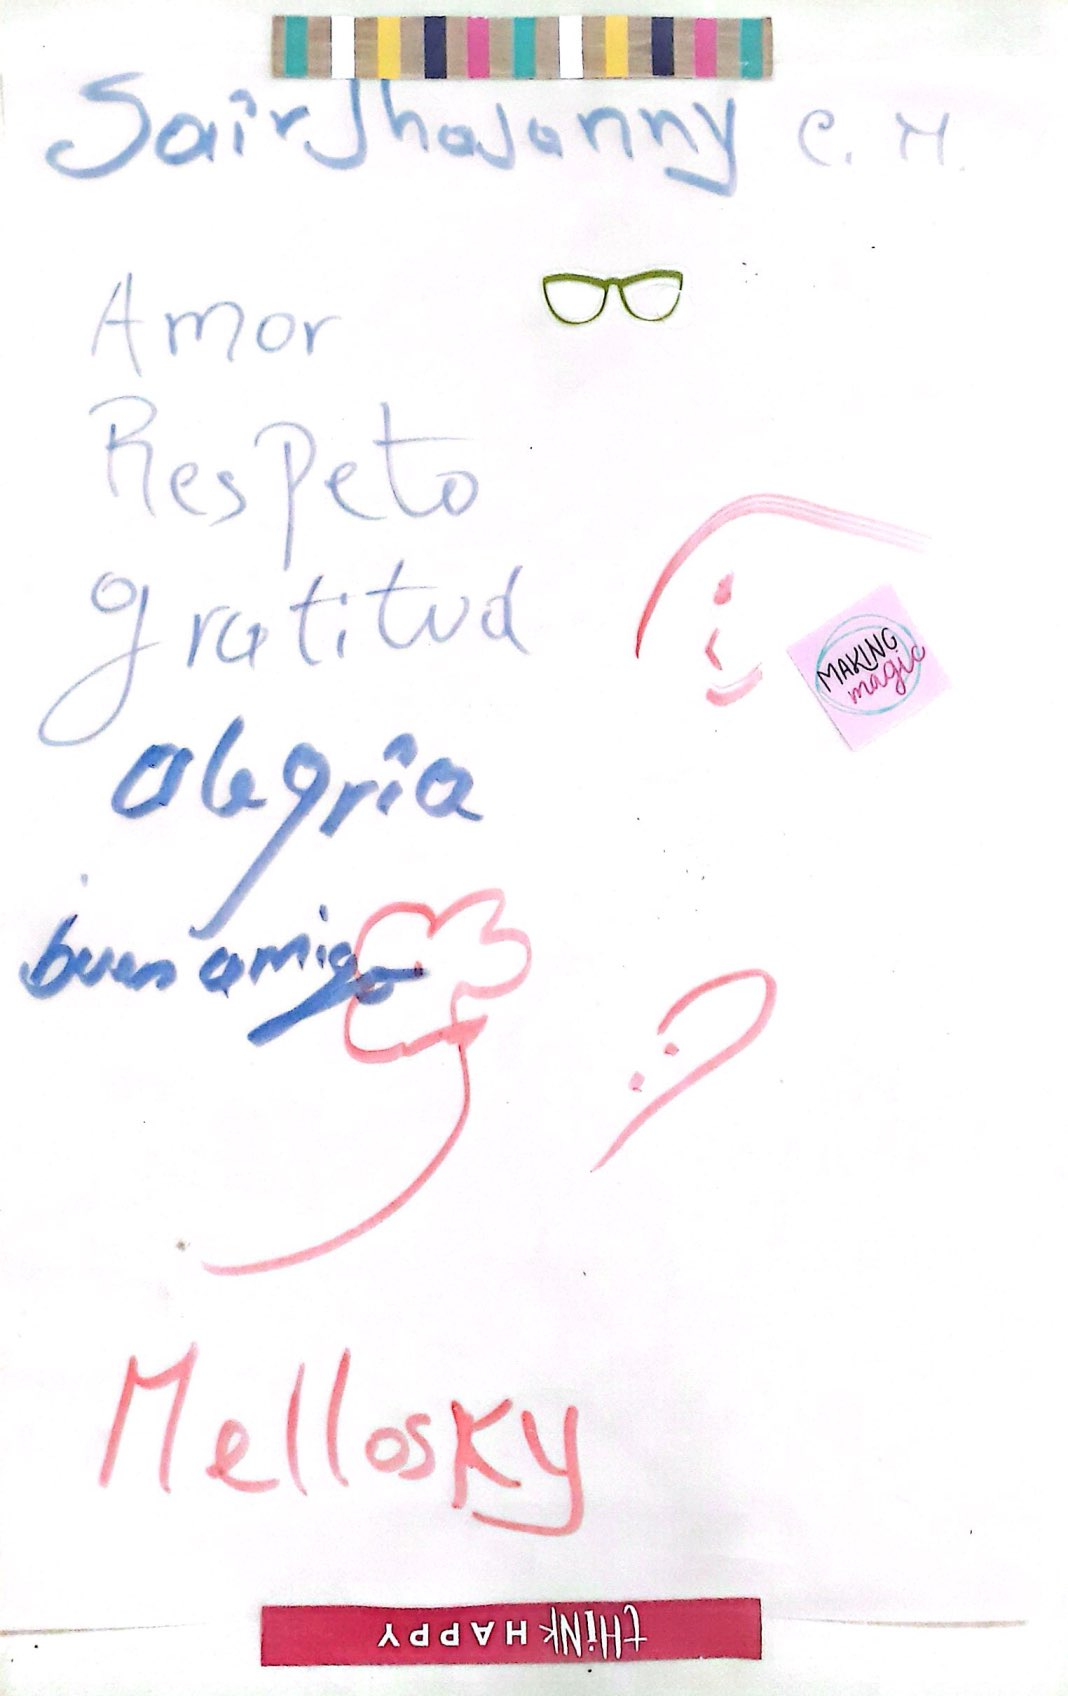 Sair Jhajanny C. M.
Amor
Respeto
gratitud
alegría
buen amigo
MAKING
magic
Mellosky
tHiNK HAPPY